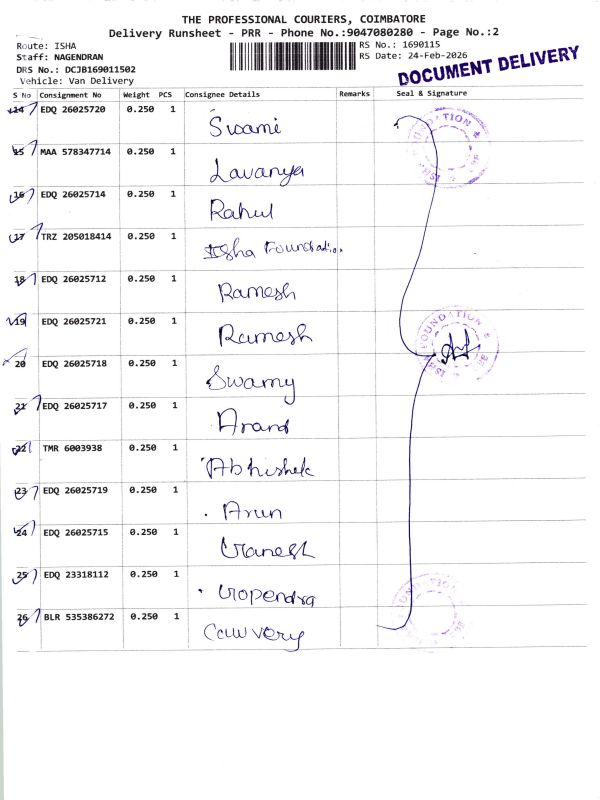 THE PROFESSIONAL COURIERS, COIMBATORE
Delivery Runsheet - PRR - Phone No.:9047080280 - Page No.:2
Route: ISHA
Staff: NAGENDRAN
DRS No.: DCJB169011502
Vehicle: Van Delivery
RS No.: 1690115
RS Date: 24-Feb-2026
DOCUMENT DELIVERY
S No Consignment No Weight PCS Consignee Details Remarks Seal & Signature
14 EDQ 26025720 0.250 1 Swami
15 MAA 578347714 0.250 1 Lavanya
16 EDQ 26025714 0.250 1 Rahul
17 TRZ 205018414 0.250 1 Isha Foundation
18 EDQ 26025712 0.250 1 Ramesh
19 EDQ 26025721 0.250 1 Ramesh
20 EDQ 26025718 0.250 1 Swamy
21 EDQ 26025717 0.250 1 Anand
22 TMR 6003938 0.250 1 Abhishek
23 EDQ 26025719 0.250 1 Arun
24 EDQ 26025715 0.250 1 Ganesh
25 EDQ 23318112 0.250 1 Gopendra
26 BLR 535386272 0.250 1 Cauvery
ISHA FOUNDATION